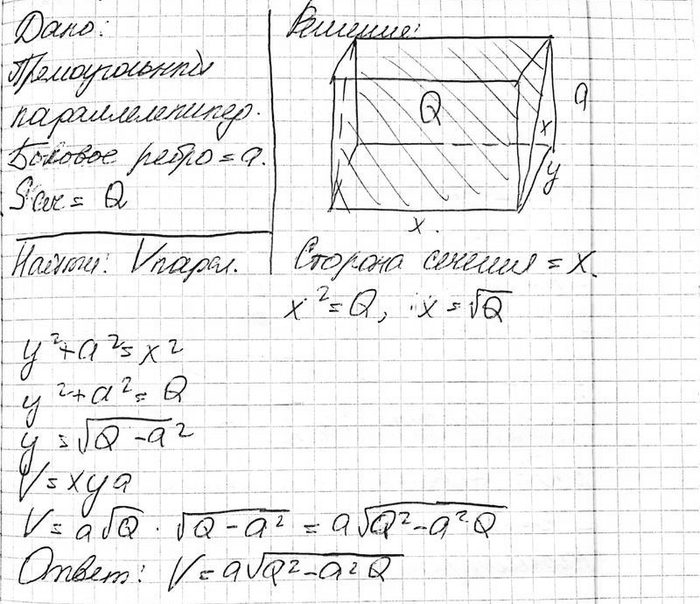 Дано:
Прямоугольный
параллелепипед.
Боковое ребро = a.
Sсеч = Q
Найти: Vпарал.
Решение:
Q
a
x
y
x.
Сторона сечения = x.
x² = Q, x = √Q
y² + a² = x²
y² + a² = Q
y = √Q - a²
V = xya
V = a√Q · √Q - a² = a√Q² - a²Q
Ответ: V = a√Q² - a²Q